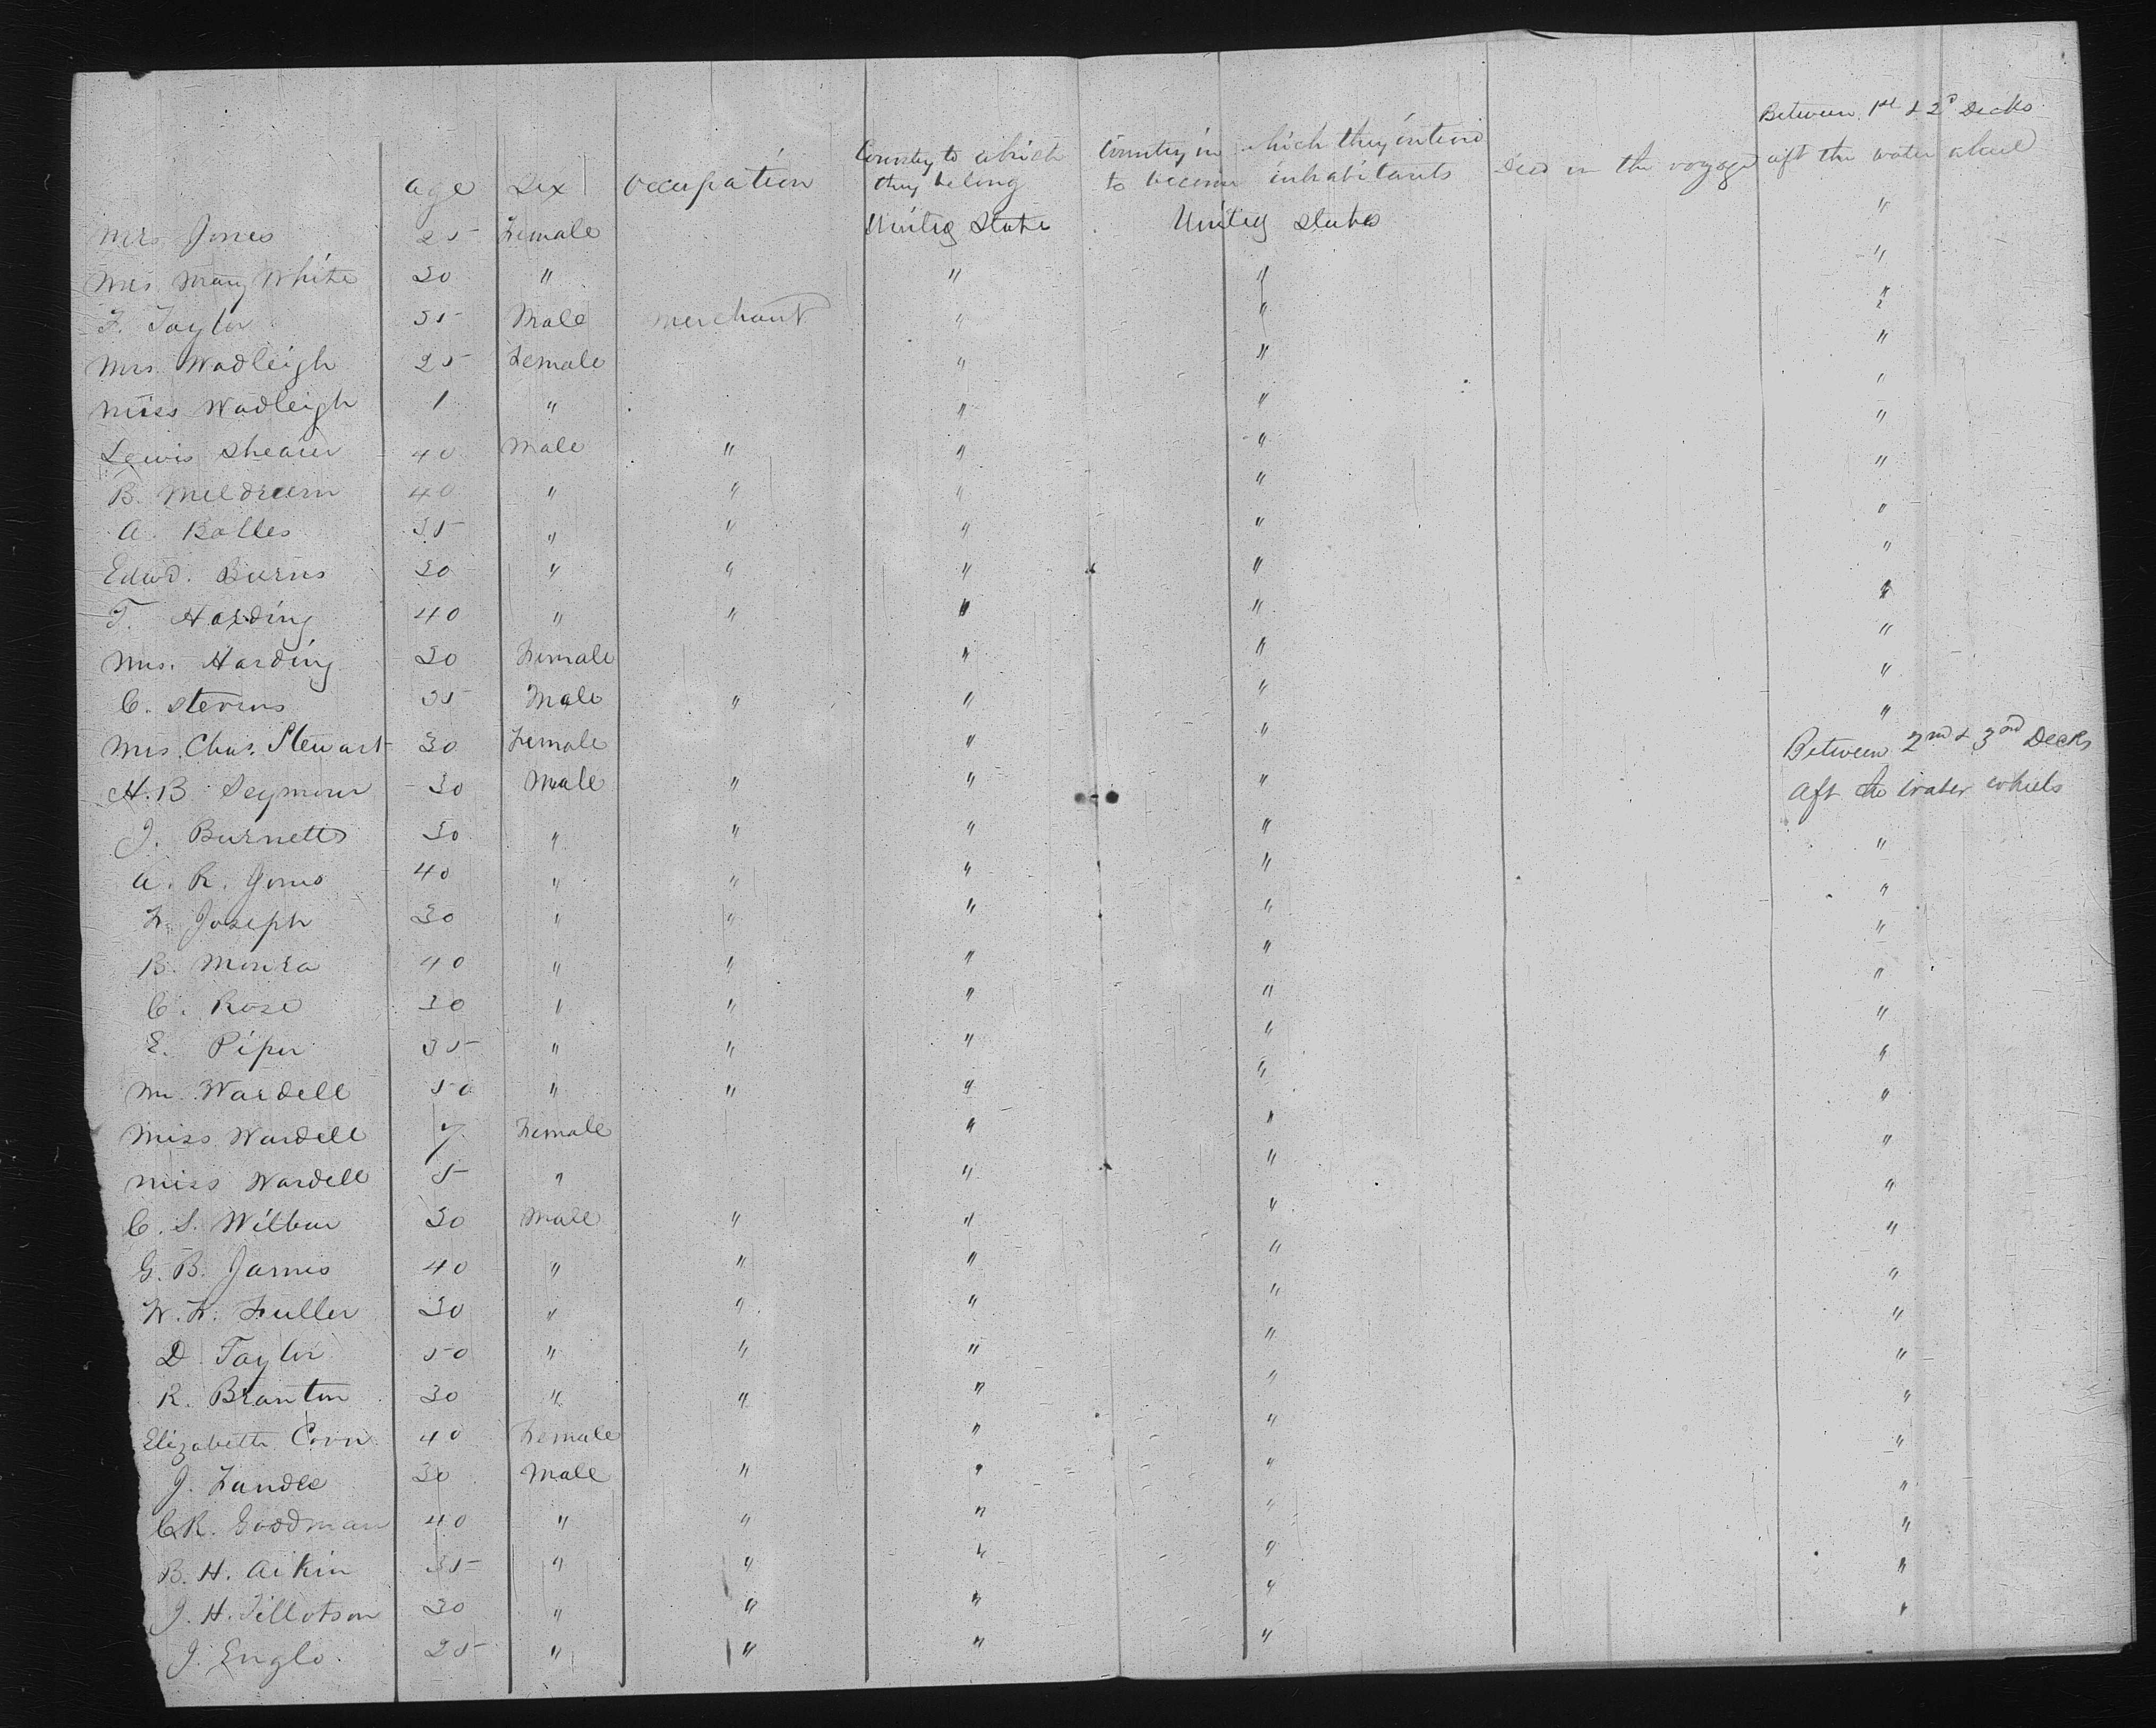 Between 1st & 2d Decks
age Sex Occupation Country to which they belong Country in which they intend to become inhabitants Died on the voyage aft the water wheel
Mrs Jones 25 Female United State United States "
Mrs Mary White 30 " " " "
F. Taylor 35 Male merchant " " "
Mrs. Wadleigh 25 Female " " "
Miss Wadleigh 1 " " " "
Lewis Shearer 40 Male " " " "
B. Meldrum 40 " " " " "
A. Balles 35 " " " " "
Edwd. Burns 30 " " " " "
T. Harding 40 " " " " "
Mrs. Harding 30 Female " " "
C. Stevens 35 Male " " " "
Mrs. Chas. Stewart 30 Female " " "
Between 2nd & 3rd Decks
H. B Seymour 30 Male " " " Aft the water wheels
J. Burnetts 30 " " " " "
A. R. Jones 40 " " " " "
L. Joseph 30 " " " " "
B. 40 " " " " "
C. Rose 30 " " " " "
E. Piper 35 " " " " "
M. Wardell 50 " " " " "
Miss Wardell 7 Female " " "
Miss Wardell 5 " " " "
C. S. Wilbur 30 Male " " " "
G. B. James 40 " " " " "
W. W. Fuller 30 " " " " "
D. Taylor 50 " " " " "
R. Branton 30 " " " " "
Elizabeth Corn 40 Female " " "
J. Landee 30 Male " " " "
C R. Goodman 40 " " " " "
B. H. Aikin 35 " " " " "
J. H. Tillotson 30 " " " " "
J. Englo 25 " " " "